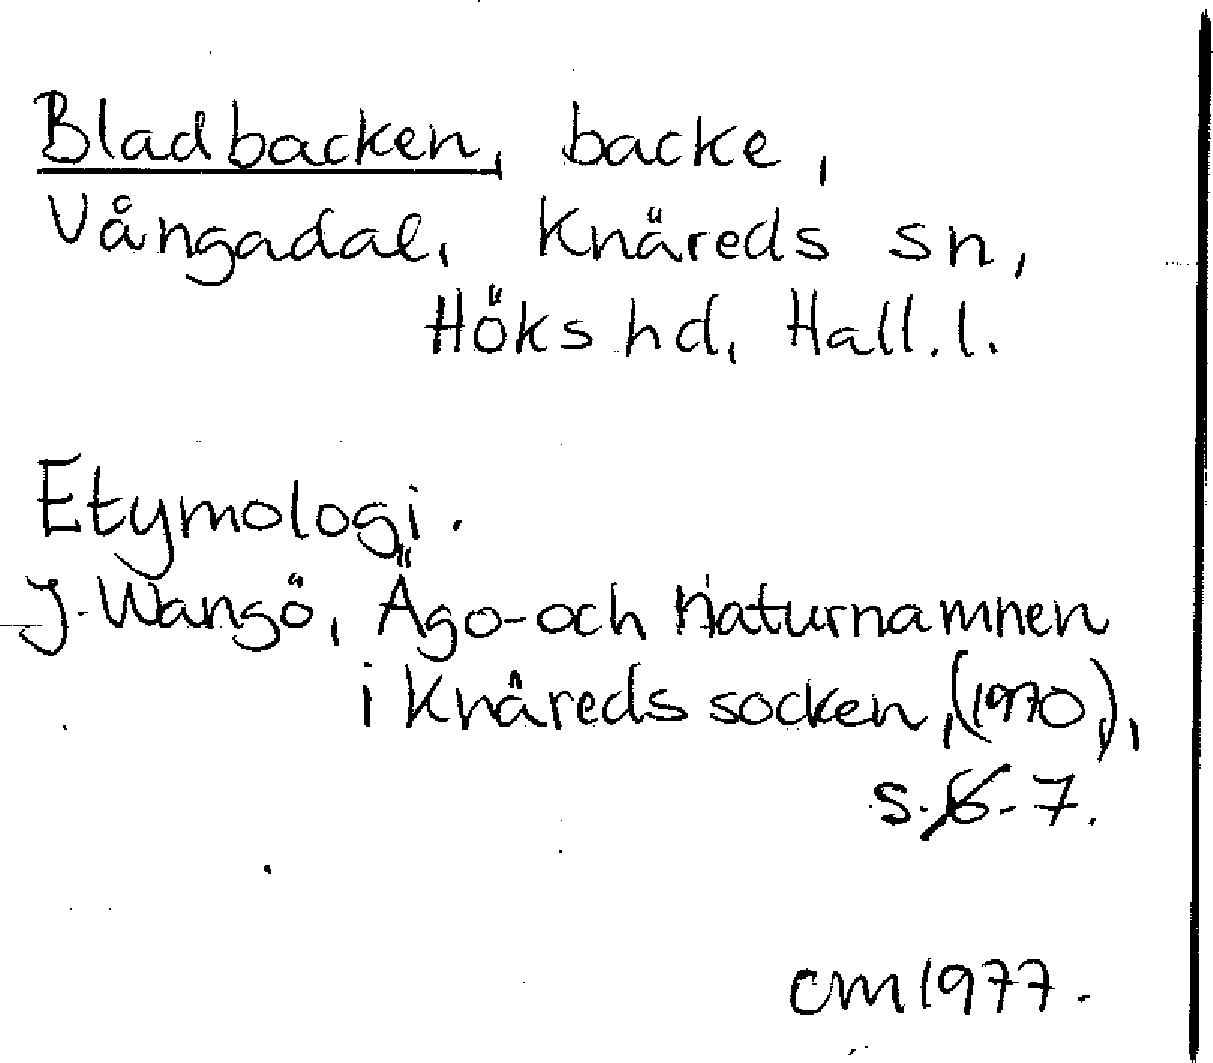 Bladbacken, backe,
Vångadal, Knäreds sn,
Höks hd, Hall. l.
Etymologi.
J. Wangö, Ägo- och naturnamnen
i Knäreds socken, (1970),
s. 6-7.
CM 1977.